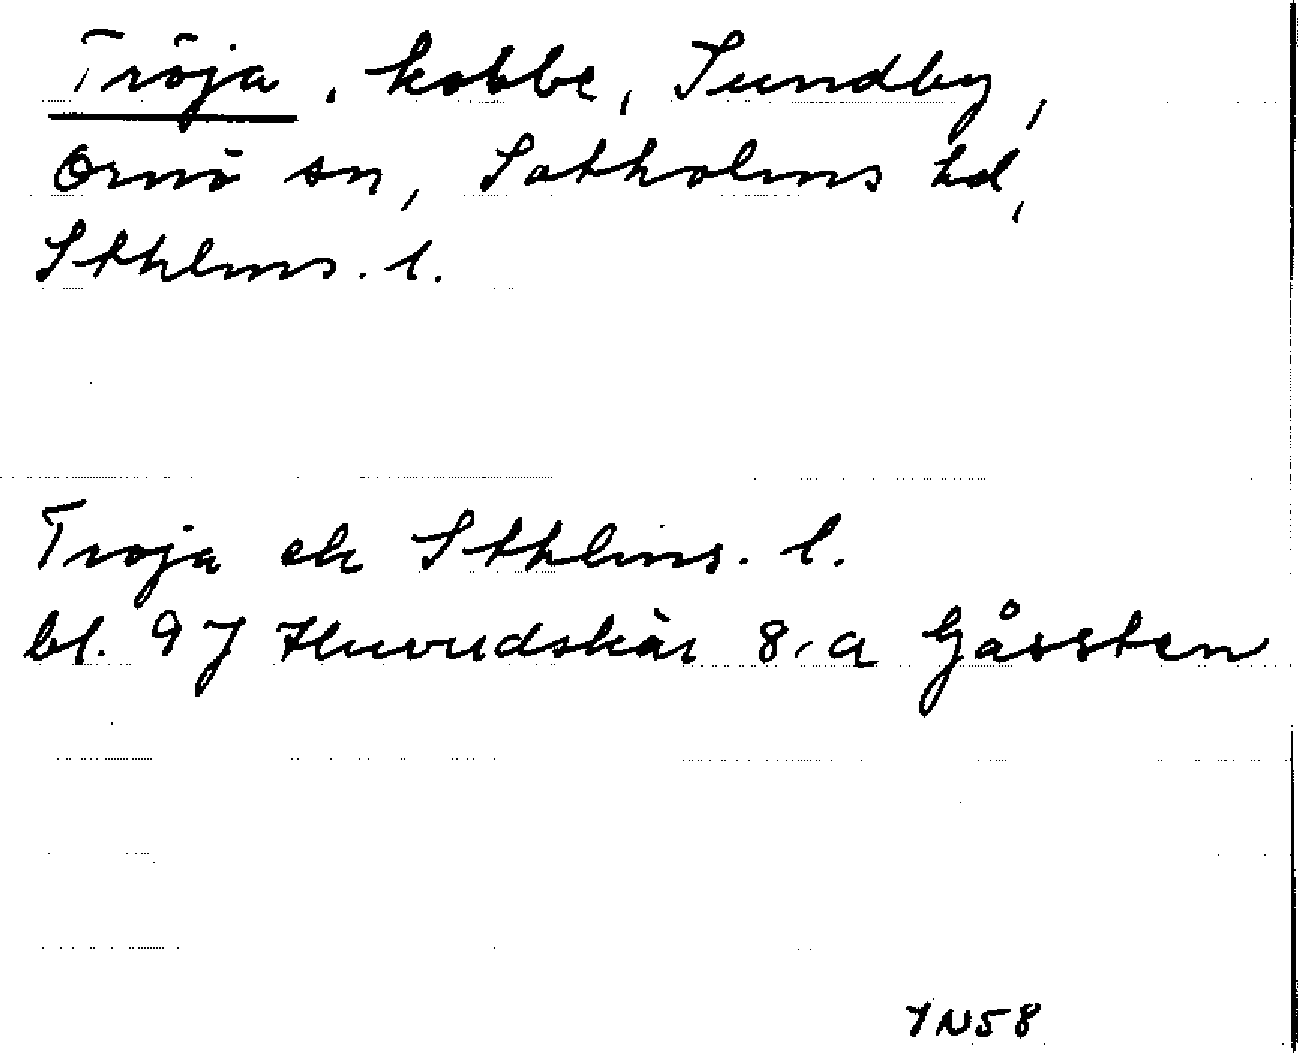 Tröja, kobbe, Sundby,
Ornö sn, Sotholms hd,
Sthlms. l.
Troja ek Sthlms. l.
bl. 97 Huvudskär 8.a Gåssten
YN58